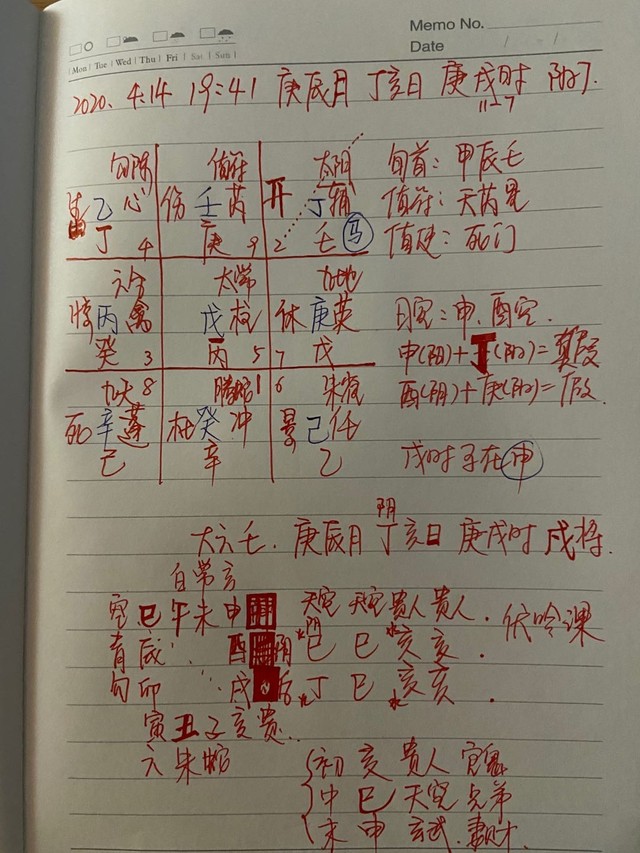 Memo No.
Date / /
Mon Tue Wed Thu Fri Sat Sun
2020. 4.14 19:41 庚辰月 丁亥日 庚戌时 阳7.
11-7
勾陈 值符 太阴 旬首:甲辰壬
乙心 伤壬芮 开丁辅 值符:天芮星
丁4 庚9 2壬马 值使:死门
六合 太常 九地
丙禽 戊柱 休庚英 日空:申、酉空.
癸3 丙5 7戊 申(阳)+丁(阴)=真
九天8 腾蛇1 6朱雀 酉(阴)+庚(阳)=假
死辛蓬 杜癸冲 景己任
己 辛 乙 戌时 在申
大六壬. 庚辰月 丁亥日 庚戌时 戌将.
阴
白常玄
空巳午未申 天空 天空 贵人 贵人. 伏吟课
青辰 酉 阴 巳 巳 亥 亥.
勾卯 戌 后 丁 巳 亥 亥.
寅丑子亥贵
六朱蛇 初 亥 贵人 官鬼
中 巳 天空 兄弟
末 申 玄武 妻财.